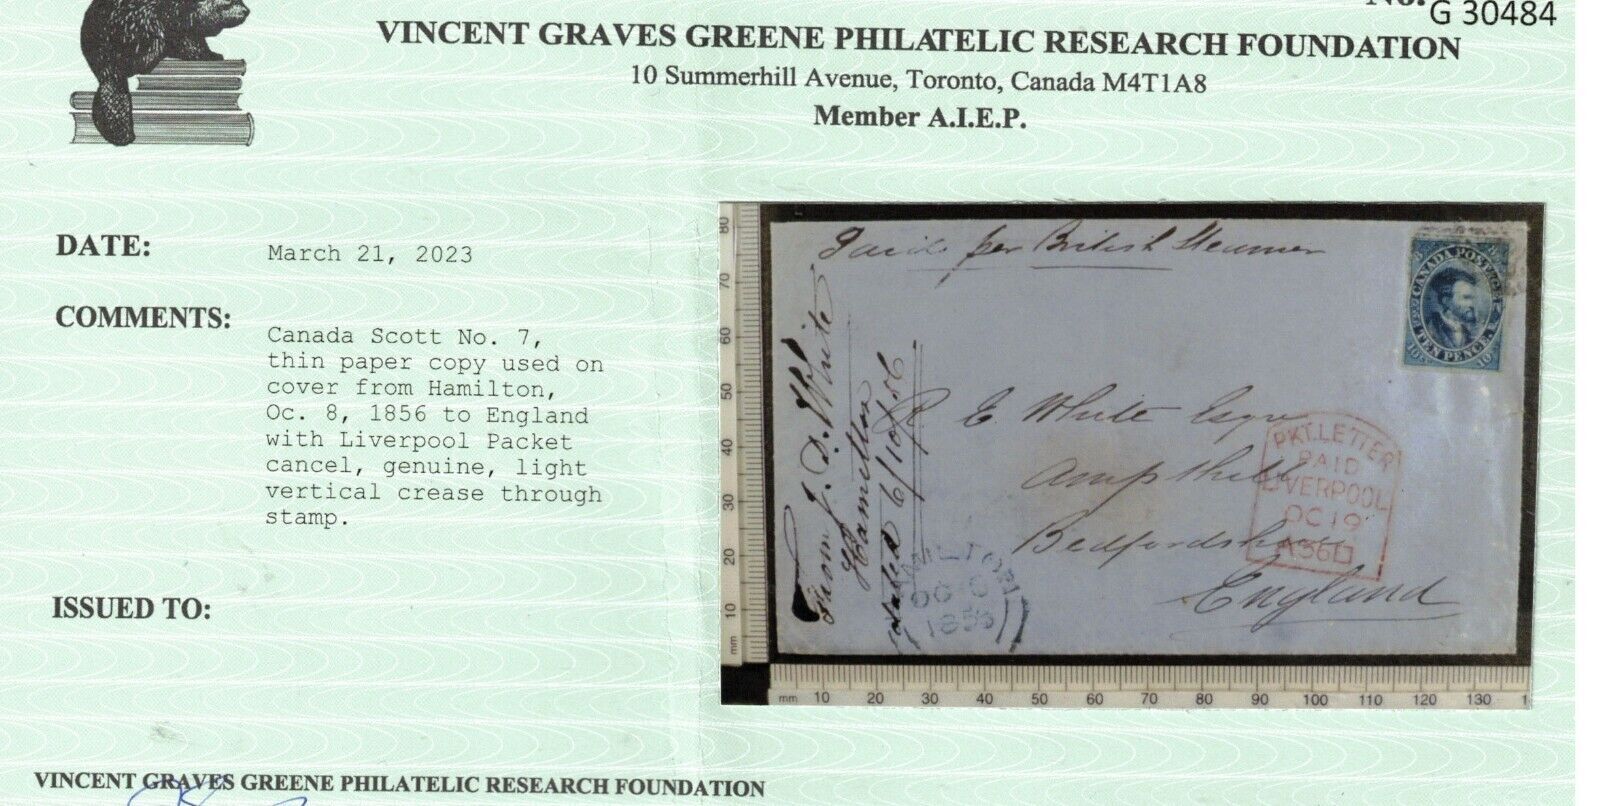 No. G 30484
VINCENT GRAVES GREENE PHILATELIC RESEARCH FOUNDATION
10 Summerhill Avenue, Toronto, Canada M4T1A8
Member A.I.E.P.
DATE:
March 21, 2023
COMMENTS:
Canada Scott No. 7,
thin paper copy used on
cover from Hamilton,
Oc. 8, 1856 to England
with Liverpool Packet
cancel, genuine, light
vertical crease through
stamp.
ISSUED TO:
80
70
60
50
40
30
20
10
mm
Paid per British Steamer
CANADA POSTAGE
TEN PENCE
From J. D. White
Hamilton
R E White Esqr
Ampthill
Bedfordshire
England
PKT. LETTER
PAID
LIVERPOOL
OC 19
HAMILTON
OC
mm 10 20 30 40 50 60 70 80 90 100 110 120 130 1
VINCENT GRAVES GREENE PHILATELIC RESEARCH FOUNDATION